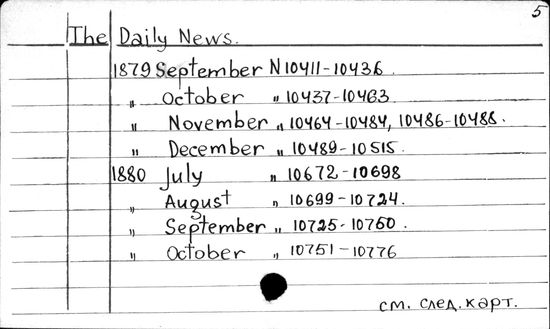 5
The Daily News.
1879 September N 10411-10436.
„ October „ 10437-10463
„ November „ 10464-10484, 10486-10488.
„ December „ 10489-10515.
1880 July „ 10672-10698
„ August „ 10699-10724.
„ September „ 10725-10750.
„ October „ 10751-10776
см. след. карт.